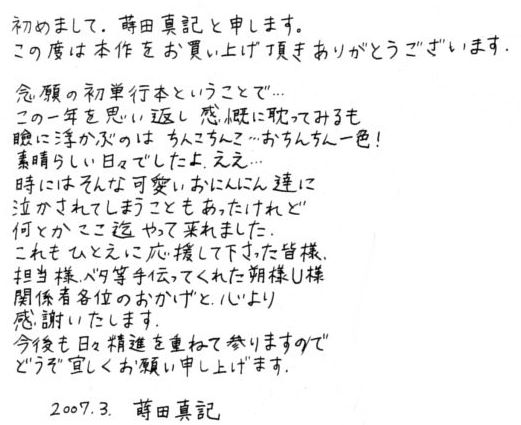 初めまして．蒔田真記と申します。
この度は本作をお買い上げ頂きありがとうございます．
念願の初単行本ということで…
この一年を思い返し感慨に耽ってみるも
瞼に浮かぶのは ちんこちんこ…おちんちん一色！
素晴らしい日々でしたよ.ええ…
時にはそんな可愛いおにんにん達に
泣かされてしまうこともあったけれど
何とかここ迄やって来れました．
これもひとえに応援して下さった皆様、
担当様、ベタ等手伝ってくれた朔様U様
関係者各位のおかげと、心より
感謝いたします．
今後も日々精進を重ねて参りますので
どうぞ宜しくお願い申し上げます．
2007.3. 蒔田真記